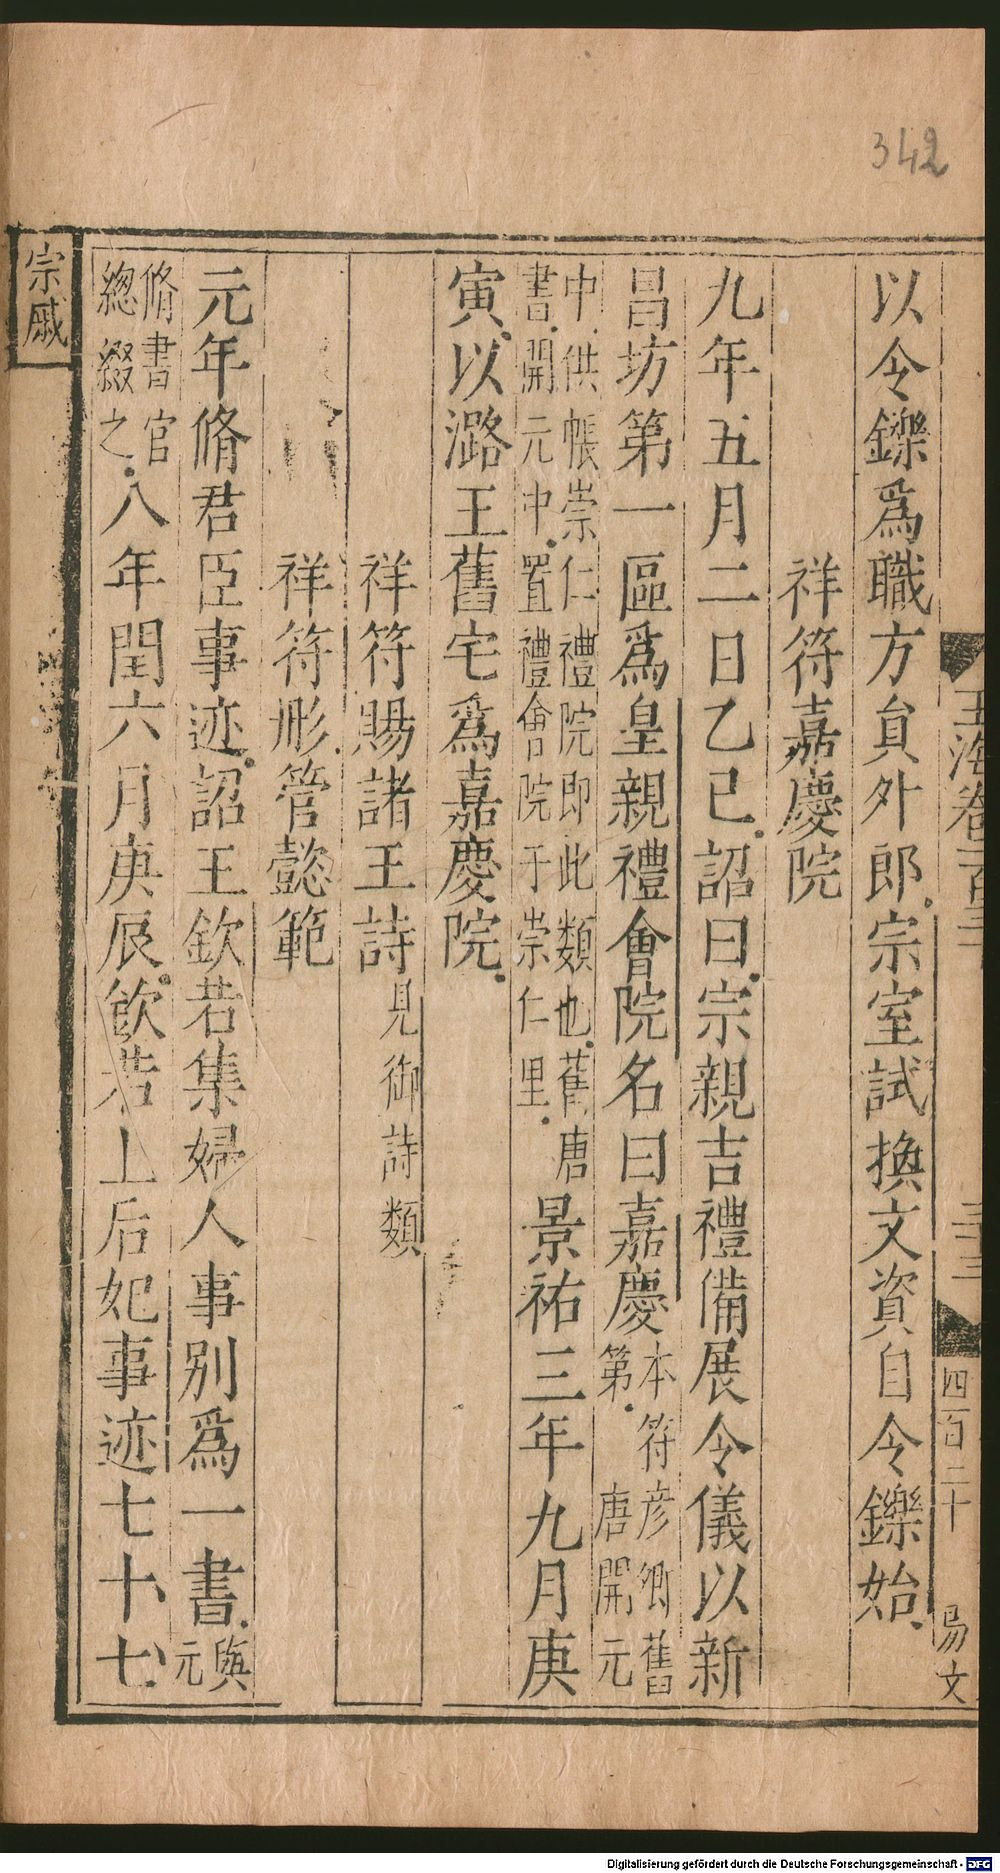 342
宗戚
玉海卷一百三十
三十三
四百二十
易文
以令鑠爲職方員外郎宗室試換文資自令鑠始
祥符嘉慶院
九年五月二日乙巳詔曰宗親吉禮備展令儀以新
昌坊第一區爲皇親禮會院名曰嘉慶本符彦卿舊第唐開元
中供帳崇仁禮院即此類也舊唐書開元中置禮會院于崇仁里景祐三年九月庚
寅以潞王舊宅爲嘉慶院
祥符賜諸王詩見御詩類
祥符彤管懿範
元年脩君臣事迹詔王欽若集婦人事別爲一書與元
脩書官總綴之八年閏六月庚辰欽若上后妃事迹七十七
Digitalisierung gefördert durch die Deutsche Forschungsgemeinschaft - DFG